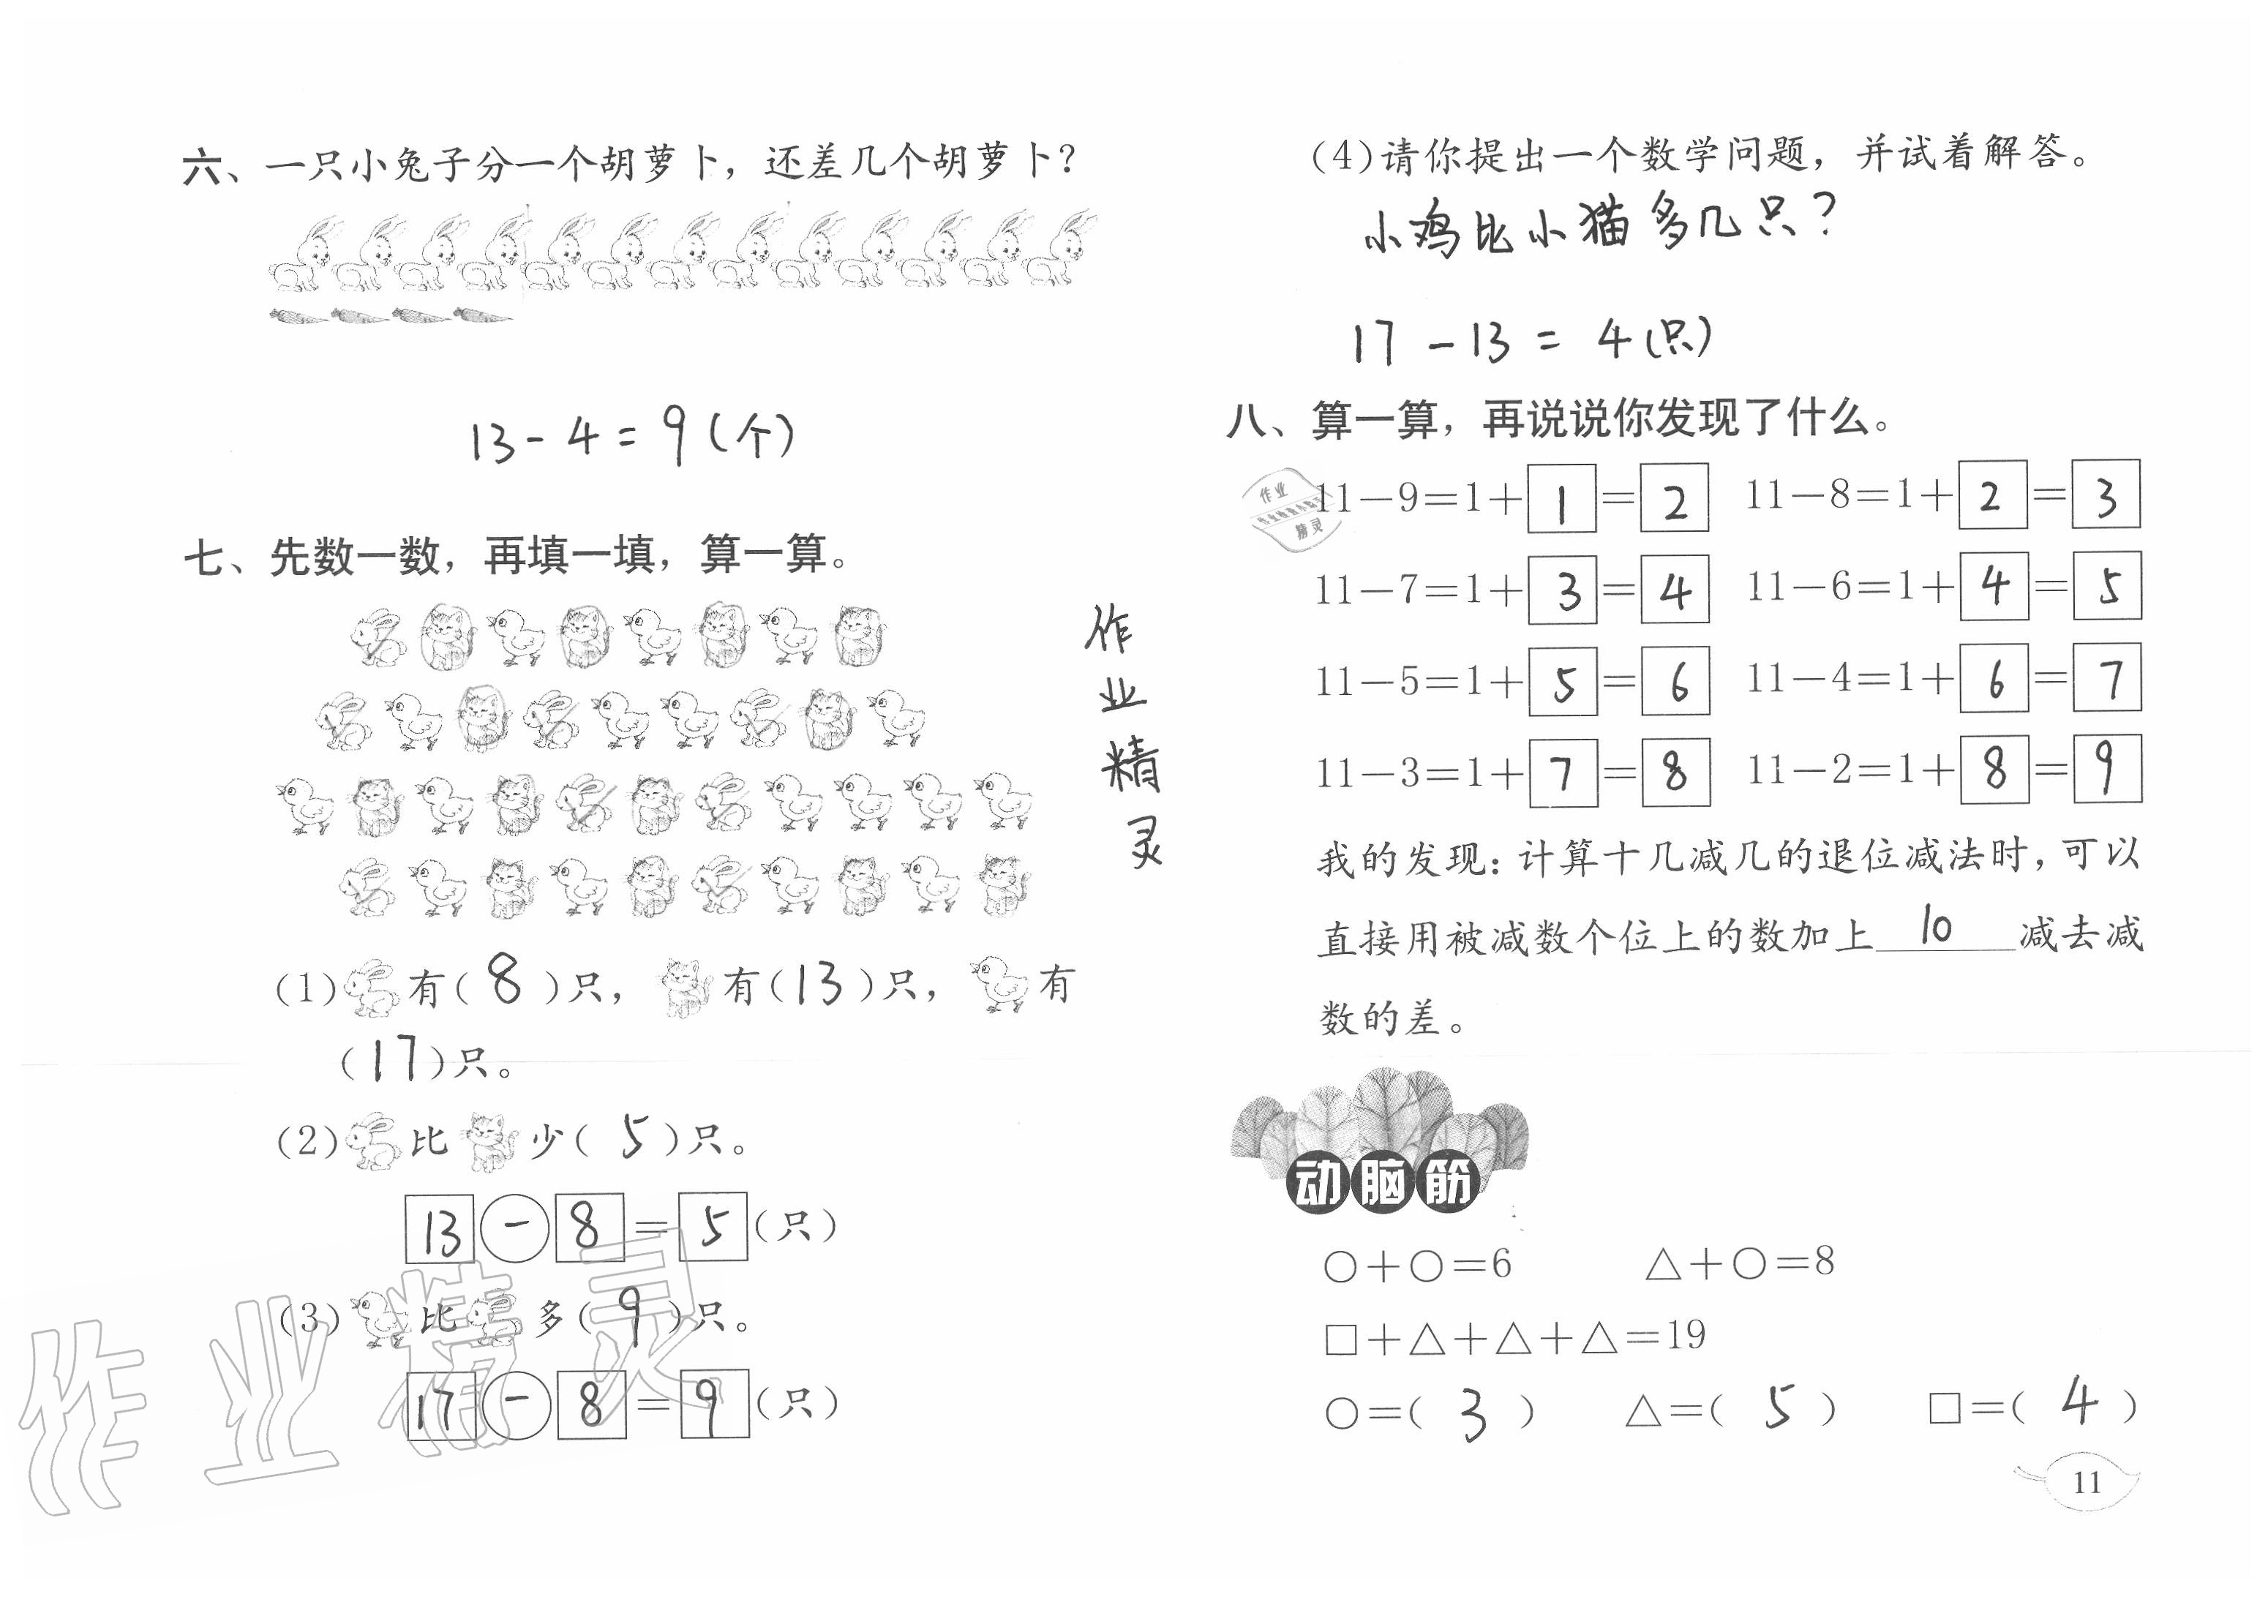 六、一只小兔子分一个胡萝卜，还差几个胡萝卜？
13-4=9(个)
七、先数一数，再填一填，算一算。
(1) 有( 8 )只， 有(13)只， 有
(17)只。
(2) 比 少( 5 )只。
13 - 8 = 5 (只)
(3) 比 多( 9 )只。
17 - 8 = 9 (只)
作
业
精
灵
作业精灵
(4)请你提出一个数学问题，并试着解答。
小鸡比小猫多几只？
17-13=4(只)
八、算一算，再说说你发现了什么。
作业
精灵
11－9＝1＋1＝2 11－8＝1＋2＝3
11－7＝1＋3＝4 11－6＝1＋4＝5
11－5＝1＋5＝6 11－4＝1＋6＝7
11－3＝1＋7＝8 11－2＝1＋8＝9
我的发现：计算十几减几的退位减法时，可以
直接用被减数个位上的数加上 10 减去减
数的差。
动脑筋
○＋○＝6 △＋○＝8
□＋△＋△＋△＝19
○＝( 3 ) △＝( 5 ) □＝( 4 )
11